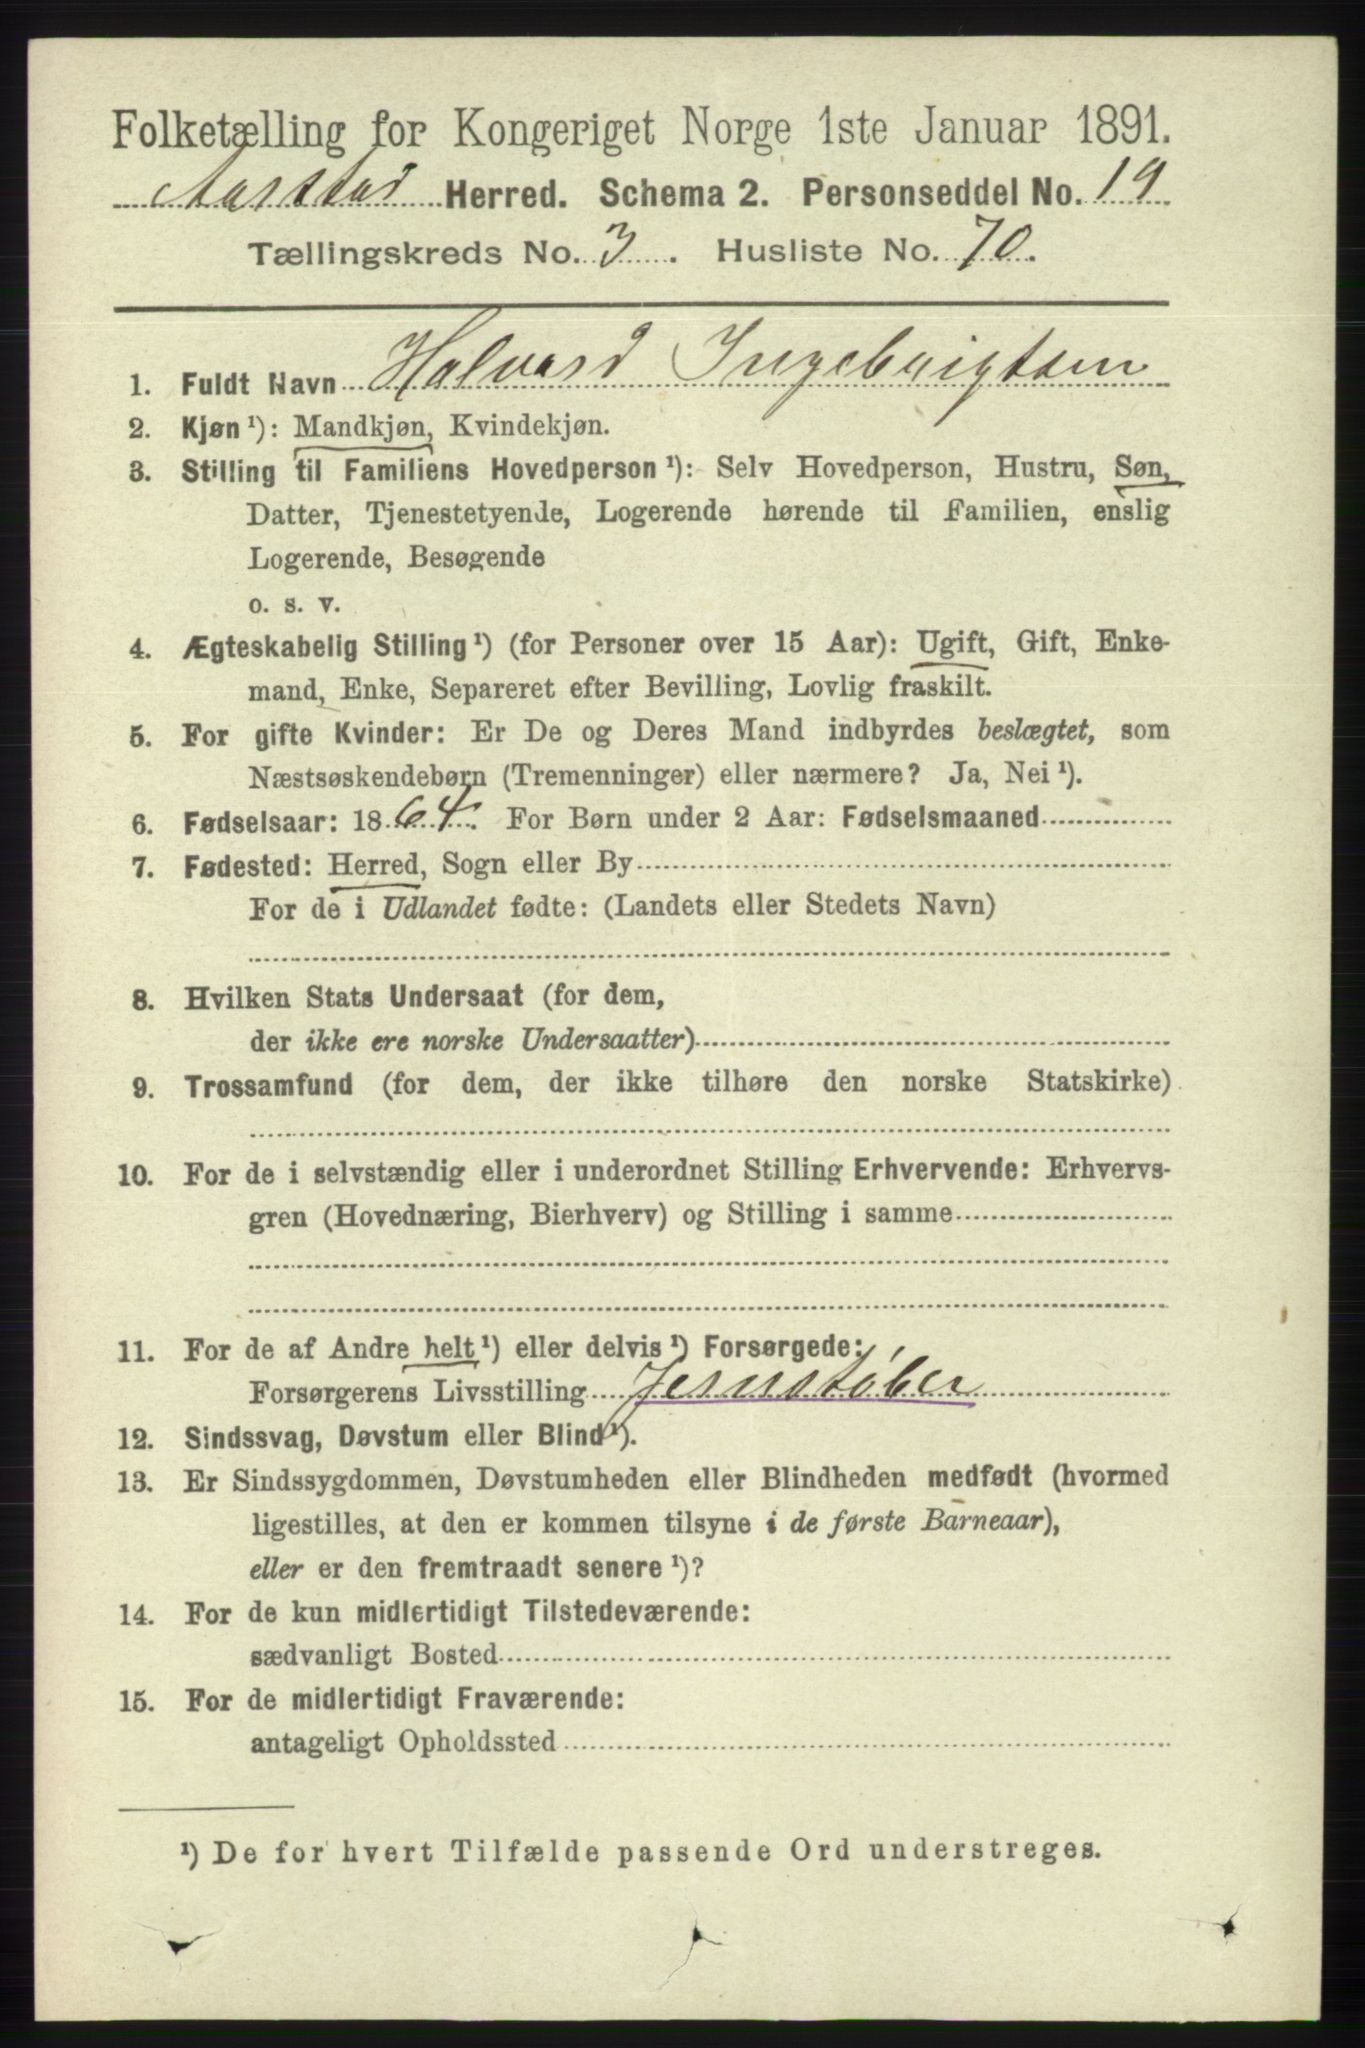 Folketælling for Kongeriget Norge 1ste Januar 1891.
Aarstad Herred. Schema 2. Personseddel No. 19
Tællingskreds No. 3. Husliste No. 70.
1. Fuldt Navn Halvard Ingebrigtsen
2. Kjøn¹): Mandkjøn, Kvindekjøn.
3. Stilling til Familiens Hovedperson¹): Selv Hovedperson, Hustru, Søn,
Datter, Tjenestetyende, Logerende hørende til Familien, enslig
Logerende, Besøgende
o. s. v.
4. Ægteskabelig Stilling¹) (for Personer over 15 Aar): Ugift, Gift, Enke-
mand, Enke, Separeret efter Bevilling, Lovlig fraskilt.
5. For gifte Kvinder: Er De og Deres Mand indbyrdes beslægtet, som
Næstsøskendebørn (Tremenninger) eller nærmere? Ja, Nei¹).
6. Fødselsaar: 1864. For Børn under 2 Aar: Fødselsmaaned
7. Fødested: Herred, Sogn eller By
For de i Udlandet fødte: (Landets eller Stedets Navn)
8. Hvilken Stats Undersaat (for dem,
der ikke ere norske Undersaatter)
9. Trossamfund (for dem, der ikke tilhøre den norske Statskirke)
10. For de i selvstændig eller i underordnet Stilling Erhvervende: Erhvervs-
gren (Hovednæring, Bierhverv) og Stilling i samme
11. For de af Andre helt¹) eller delvis¹) Forsørgede:
Forsørgerens Livsstilling Jernstøber
12. Sindssvag, Døvstum eller Blind¹).
13. Er Sindssygdommen, Døvstumheden eller Blindheden medfødt (hvormed
ligestilles, at den er kommen tilsyne i de første Barneaar),
eller er den fremtraadt senere¹)?
14. For de kun midlertidigt Tilstedeværende:
sædvanligt Bosted
15. For de midlertidigt Fraværende:
antageligt Opholdssted
¹) De for hvert Tilfælde passende Ord understreges.